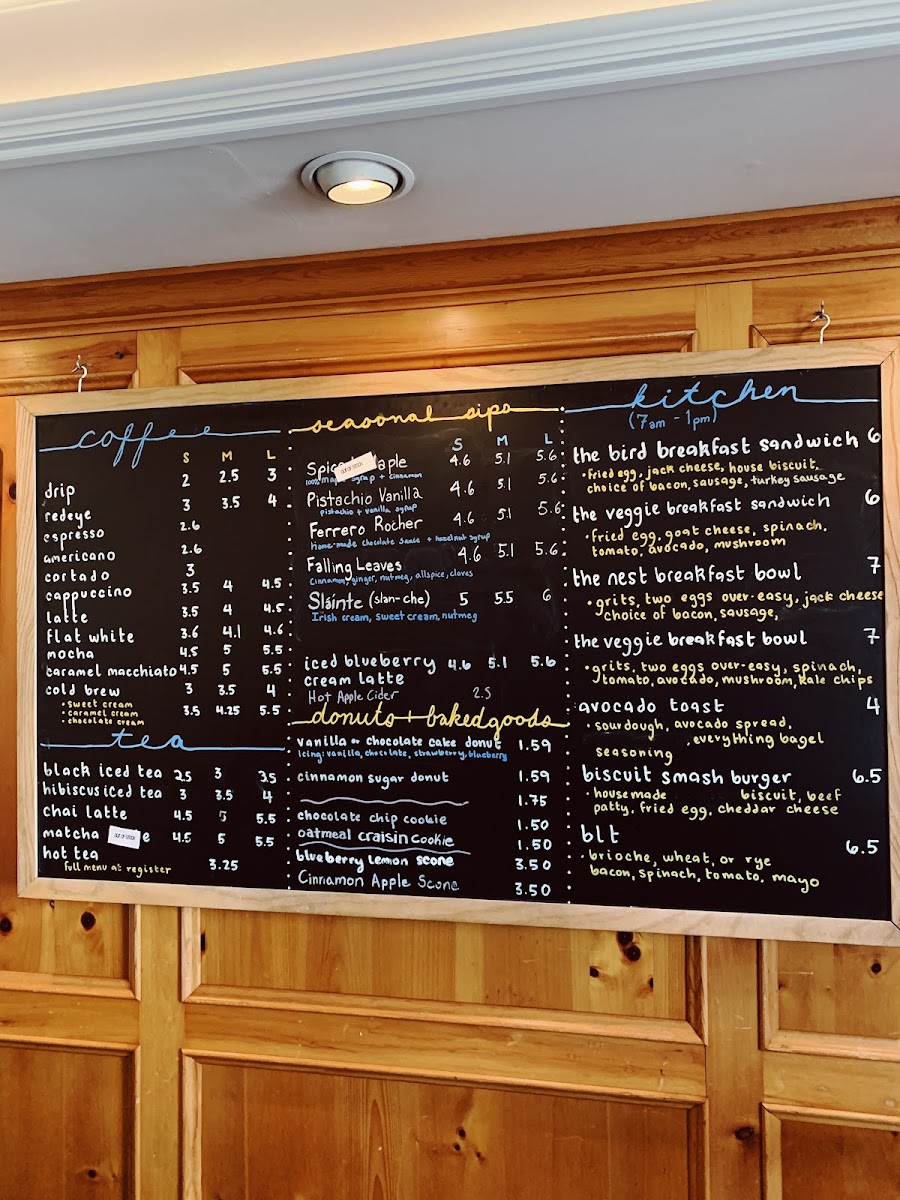 coffee
S M L
drip 2 2.5 3
redeye 3 3.5 4
espresso 2.6
americano 2.6
cortado 3
cappuccino 3.5 4 4.5
latte 3.5 4 4.5
flat white 3.6 4.1 4.6
mocha 4.5 5 5.5
caramel macchiato 4.5 5 5.5
cold brew 3 3.5 4
• sweet cream
• caramel cream 3.5 4.25 5.5
• chocolate cream
tea
black iced tea 2.5 3 3.5
hibiscus iced tea 3 3.5 4
chai latte 4.5 5 5.5
matcha OUT OF STOCK e 4.5 5 5.5
hot tea
full menu at register 3.25
seasonal sips
S M L
OUT OF STOCK aple 4.6 5.1 5.6
100% syrup + cinnamon
Pistachio Vanilla 4.6 5.1 5.6
pistachio + vanilla syrup
Ferrero Rocher 4.6 5.1 5.6
Home-made chocolate sauce + hazelnut syrup
Falling Leaves 4.6 5.1 5.6
Cinnamon, ginger, nutmeg, allspice, cloves
Sláinte (slan-che) 5 5.5 6
Irish cream, sweet cream, nutmeg
iced blueberry 4.6 5.1 5.6
cream latte
Hot Apple Cider 2.5
donuts + baked goods
vanilla or chocolate cake donut 1.59
Icing: vanilla, chocolate, strawberry, blueberry
cinnamon sugar donut 1.59
1.75
chocolate chip cookie 1.50
oatmeal craisin cookie 1.50
blueberry lemon scone 3.50
Cinnamon Apple Scone 3.50
kitchen
(7am - 1pm)
the bird breakfast sandwich 6
• fried egg, jack cheese, house biscuit,
choice of bacon, sausage, turkey sausage
the veggie breakfast sandwich 6
• fried egg, goat cheese, spinach,
tomato, avocado, mushroom
the nest breakfast bowl 7
• grits, two eggs over-easy, jack cheese
choice of bacon, sausage,
the veggie breakfast bowl 7
• grits, two eggs over-easy, spinach,
tomato, avocado, mushroom, kale chips
avocado toast 4
• sourdough, avocado spread,
, everything bagel
seasoning
biscuit smash burger 6.5
• housemade biscuit, beef
patty, fried egg, cheddar cheese
blt 6.5
• brioche, wheat, or rye
bacon, spinach, tomato, mayo